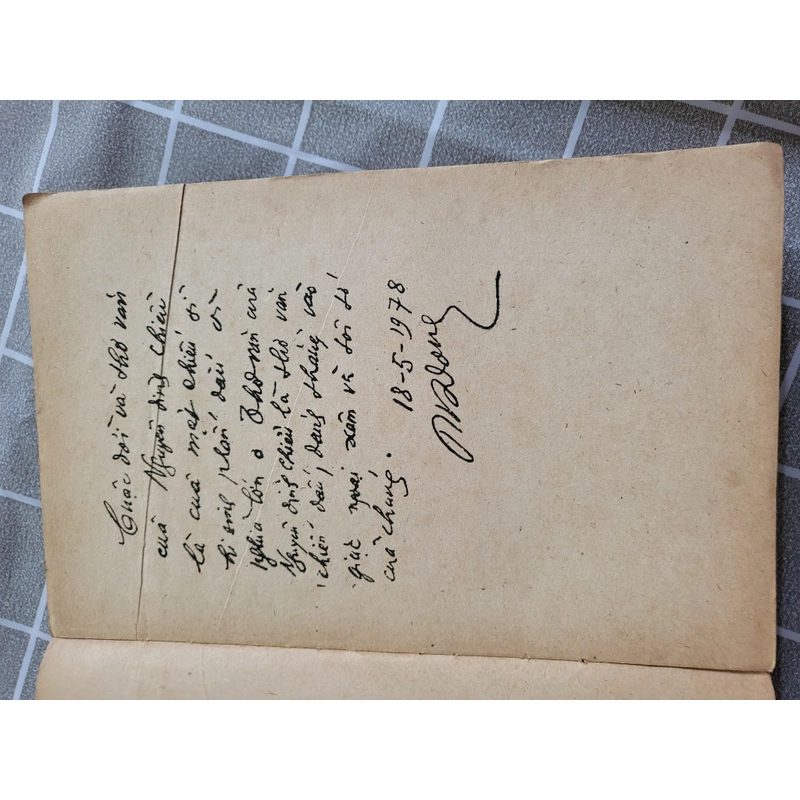 Cuộc đời và thơ văn
của Nguyễn Đình Chiểu
là của một chiến sĩ
hi sinh phấn đấu vì
nghĩa lớn. Thơ văn của
Nguyễn Đình Chiểu là thơ văn
chiến đấu, đánh thẳng vào
giặc ngoại xâm và tôi tớ
của chúng.
18-5-1978